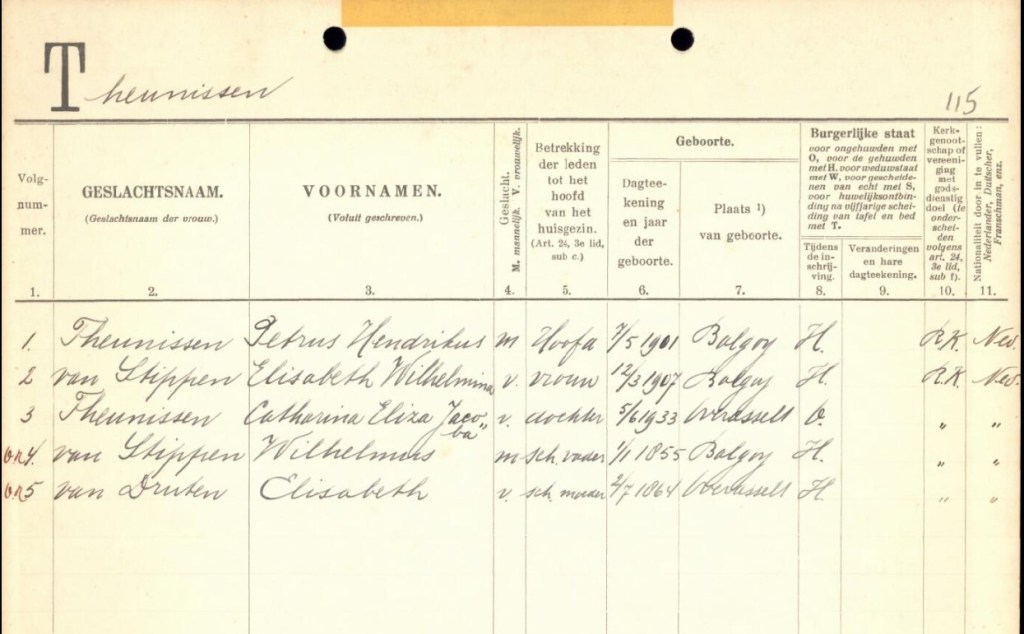 Theunissen
115
Volg-
num-
mer.
GESLACHTSNAAM.
(Geslachtsnaam der vrouw.)
VOORNAMEN.
(Voluit geschreven.)
Geslacht.
M. mannelijk. V. vrouwelijk.
Betrekking
der leden
tot het
hoofd
van het
huisgezin.
(Art. 24, 3e lid,
sub c.)
Geboorte.
Dagtee-
kening
en jaar
der
geboorte.
Plaats ¹)
van geboorte.
Burgerlijke staat
voor ongehuwden met
O, voor de gehuwden
met H. voor weduwstaat
met W, voor gescheide-
nen van echt met S,
voor huwelijksontbin-
ding na vijfjarige schei-
ding van tafel en bed
met T.
Tijdens
de in-
schrij-
ving.
Veranderingen
en hare
dagteekening.
Kerk-
genoot-
schap of
vereeni-
ging
met
gods-
dienstig
doel (te
onder-
schei-
den
volgens
art. 24,
3e lid,
sub f).
Nationaliteit door in te vullen:
Nederlander, Duitscher,
Franschman, enz.
1. 2. 3. 4. 5. 6. 7. 8. 9. 10. 11.
1. Theunissen Petrus Hendrikus m Hoofd 7/5 1901 Balgoy H. R.K. Ned.
2 van Stippen Elisabeth Wilhelmina v. vrouw 12/3 1907 Balgoy H. R.K. Ned.
3 Theunissen Catharina Eliza Jaco„ba v. dochter 5/6 1933 Overasselt O. „ „
4. van Stippen Wilhelmus m sch. vader 1/1 1855 Balgoy H. „ „
5 van Druten Elisabeth v. sch. moeder 2/7 1864 Overasselt H. „ „